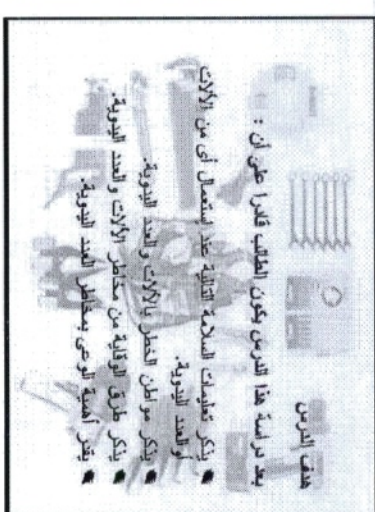 هدف الدرس
بعد دراسة هذا الدرس يكون الطالب قادرا على أن :
يذكر تعليمات السلامة التالية عند إستعمال أى من الألات
أو العدد اليدوية.
يذكر مواطن الخطر بالألات والعدد اليدوية.
يذكر طرق الوقاية من مخاطر الألات والعدد اليدوية.
يقدر أهمية الوعى بمخاطر العدد اليدوية.